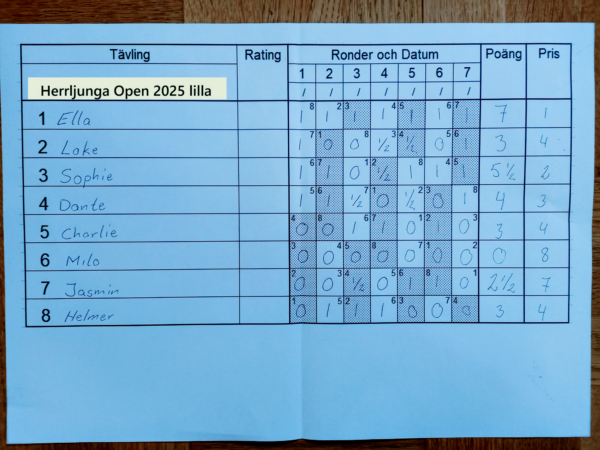 Tävling Rating Ronder och Datum Poäng Pris
1 2 3 4 5 6 7
Herrljunga Open 2025 lilla / / / / / / /
1 Ella 1 8 1 2 3 1 1 4 5 1 1 6 7 1 7 1
2 Loke 1 7 1 0 0 8 ½ 3 4 ½ 0 5 6 1 3 4
3 Sophie 1 6 7 1 0 1 2 ½ 1 8 1 4 5 1 5½ 2
4 Dante 1 5 6 1 ½ 7 1 0 ½ 2 3 0 1 8 4 3
5 Charlie 4 0 8 0 1 6 7 1 0 1 2 1 0 3 3 4
6 Milo 3 0 0 4 5 0 8 0 0 7 1 0 0 2 0 8
7 Jasmin 2 0 0 3 4 ½ 0 5 6 1 8 1 0 1 2½ 7
8 Helmer 1 0 1 5 2 1 1 6 3 0 0 7 4 0 3 4